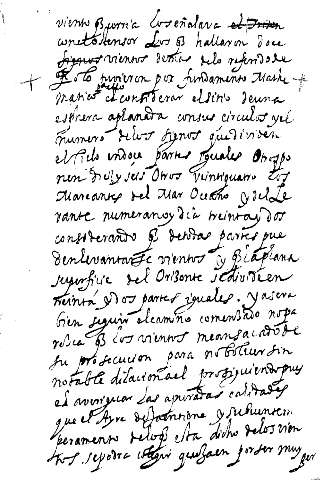 viento q̃ corria los señalava el Triton
con el tensor Los q̃ hallaron doce
signos vientos demas delo referido de
Rolo tuvieron por fundamento Mathe
matico el considerar el sitio de una
esphera aplanada con sus circulos y el
numero delos signos que dividen
el Cielo en doce partes iguales Otros po
nen diez y seis Otros veintiquatro Los
Mareantes del Mar Oceano y del Le
vante numeran oy dia treinta y dos
considerando q̃ de todas partes pue
den levantarse vientos y q̃ la plana
superficie del Orizonte se divide en
treinta y dos partes iguales. y asi sera
bien seguir el camino comensado no pa
resca q̃ los vientos me an sacado de
su prosecucion para no bolver sin
notable dilacion a el prosiguiendo pues
el averiguar las apuradas calidades
que el Ayre contiene y su buen tem
peramento delo q̃ esta dicho de los vien
tos. se podra colegir que haen por ser muy
per